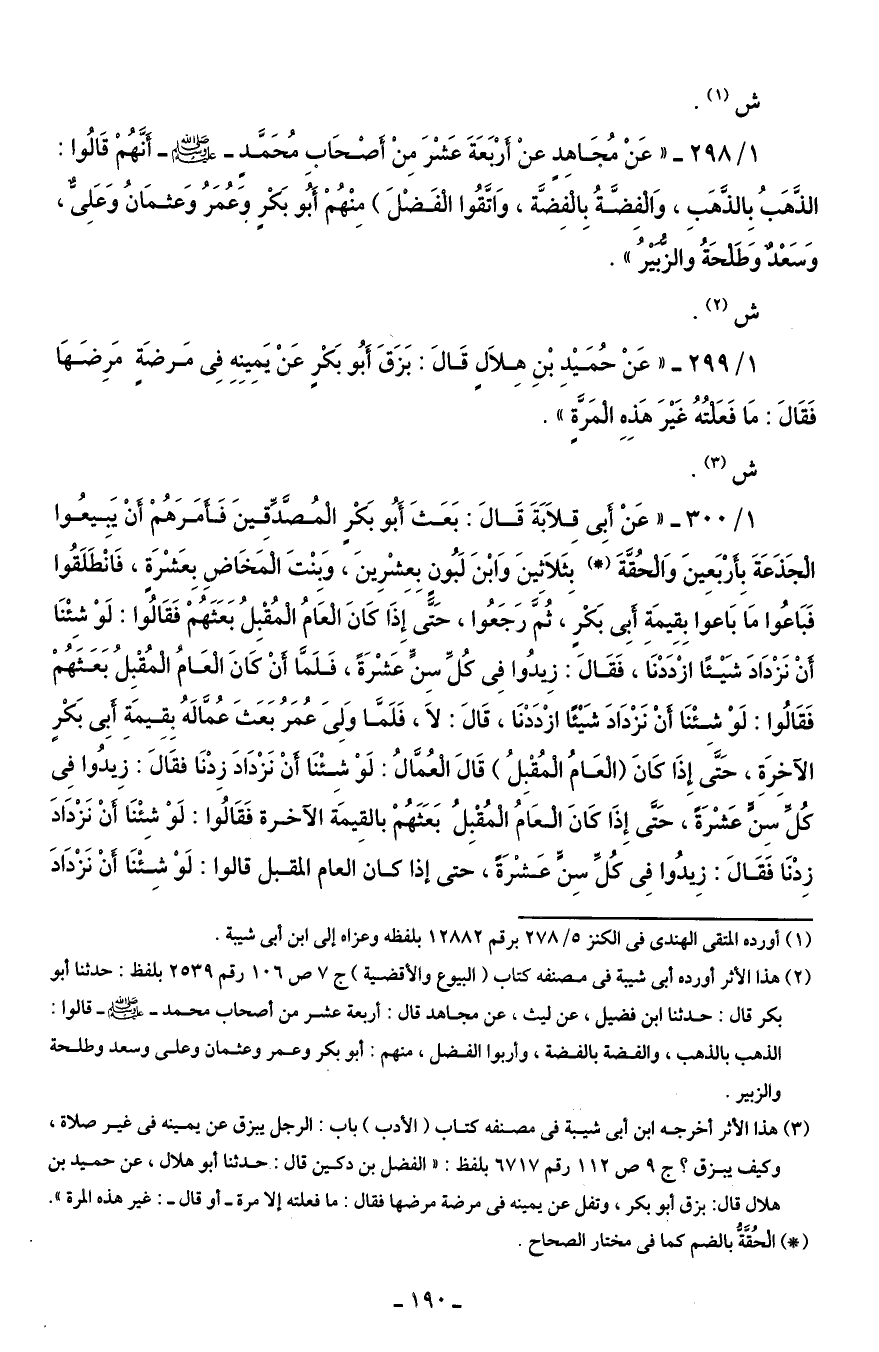 ش (١) .
١/ ٢٩٨ ـ « عَنْ مُجَاهِدٍ عنْ أَرْبَعَةَ عَشْرَ مِنْ أَصْحَابِ مُحَمَّدٍ ـ ﷺ ـ أَنَّهُمْ قَالُوا :
الذَّهَبُ بِالذَّهَبِ ، وَالْفِضَّةُ بِالْفِضَّة ، وَاتَّقُوا الْفَضْلَ ) مِنْهُمْ أَبُو بَكْرٍ وَعُمَرُ وَعثمَانُ وَعَلىٌّ ،
وَسَعْدٌ وَطَلْحَةُ والزُّبَيْرُ » .
ش (٢) .
١/ ٢٩٩ ـ « عَنْ حُمَيْدِ بْنِ هِلاَلٍ قَالَ : بَزَقَ أَبُو بَكْرٍ عَنْ يَمِينِهِ فِى مَرضَةٍ مَرِضَهَا
فَقَالَ : مَا فَعَلْتُهُ غَيْرَ هَذِهِ الْمَرَّةِ » .
ش (٣) .
١/ ٣٠٠ ـ « عَنْ أَبِى قِلاَبَةَ قَالَ : بَعَثَ أَبُو بَكْرٍ الْمُصَدِّقِينَ فَأَمَرَهُمْ أَنْ يَبِيعُوا
الْجَذَعَةَ بِأَرْبَعِينَ وَالْحُقَّةَ (*) بِثَلاَثينَ وَابْنَ لَبُونٍ بِعشْرِينَ ، وَبِنْتَ الْمَخَاضِ بِعَشْرَةٍ ، فَانْطَلَقُوا
فَبَاعُوا مَا بَاعوا بِقِيمَةِ أَبِى بَكْرٍ ، ثُمَّ رَجَعُوا ، حَتَّى إِذَا كَانَ الْعَامُ الْمُقْبِلُ بَعَثَهُمْ فَقَالُوا : لَوْ شئْنَا
أَنْ نَزْدَادَ شَيْئًا ازْدَدْنَا ، فَقَالَ : زِيدُوا فِى كُلِّ سنٍّ عَشْرَةً ، فَلَمَّا أَنْ كَانَ الْعَامُ الْمُقْبِلُ بَعَثَهُمْ
فَقَالُوا : لَوْ شئْنَا أَنْ نَزْدَادَ شَيْئًا ازْدَدْنَا ، قَالَ : لاَ ، فَلَمَّا وَلِىَ عُمَرُ بَعَثَ عُمَّالَهُ بِقِيمَةِ أَبِى بَكْرٍ
الآخِرَةِ ، حَتَّى إِذَا كَانَ (الْعَامُ الْمُقْبِلُ ) قَالَ الْعُمَّالُ : لَوْ شئْنَا أَنْ نَزْدَادَ زِدْنَا فقَالَ : زِيدُوا فِى
كُلِّ سنٍّ عَشْرَةً ، حَتَّى إِذَا كَانَ الْعَامُ الْمُقْبِلُ بَعَثَهُمْ بالقيمَة الآخرة فَقَالُوا : لَوْ شئْنَا أَنْ نَزْدَادَ
زِدْنَا فَقَالَ : زِيدُوا فِى كُلِّ سنٍّ عَشْرَةً ، حتى إذا كان العام المقبل قالوا : لَوْ شئْنَا أَنْ نَزْدَادَ
(١) أورده المتقى الهندى فى الكنز ٥/ ٢٧٨ برقم ١٢٨٨٢ بلفظه وعزاه إلى ابن أبى شيبة .
(٢) هذا الأثر أورده أبى شيبة فى مصنفه كتاب ( البيوع والأقضية ) ج ٧ ص ١٠٦ رقم ٢٥٣٩ بلفظ : حدثنا أبو
بكر قال : حدثنا ابن فضيل ، عن ليث ، عن مجاهد قال : أربعة عشر من أصحاب محمد ـ ﷺ ـ قالوا :
الذهب بالذهب ، والفضة بالفضة ، وأربوا الفضل ، منهم : أبو بكر وعمر وعثمان وعلى وسعد وطلحة
والزبير .
(٣) هذا الأثر أخرجه ابن أبى شيبة فى مصنفه كتاب ( الأدب ) باب : الرجل يبزق عن يمينه فى غير صلاة ،
وكيف يبزق ؟ ج ٩ ص ١١٢ رقم ٦٧١٧ بلفظ : « الفضل بن دكين قال : حدثنا أبو هلال ، عن حميد بن
هلال قال: بزق أبو بكر ، وتفل عن يمينه فى مرضة مرضها فقال : ما فعلته إلا مرة ـ أو قال ـ : غير هذه المرة ».
(*) الْحُقَّةُ بالضم كما فى مختار الصحاح .
ـ ١٩٠ ـ